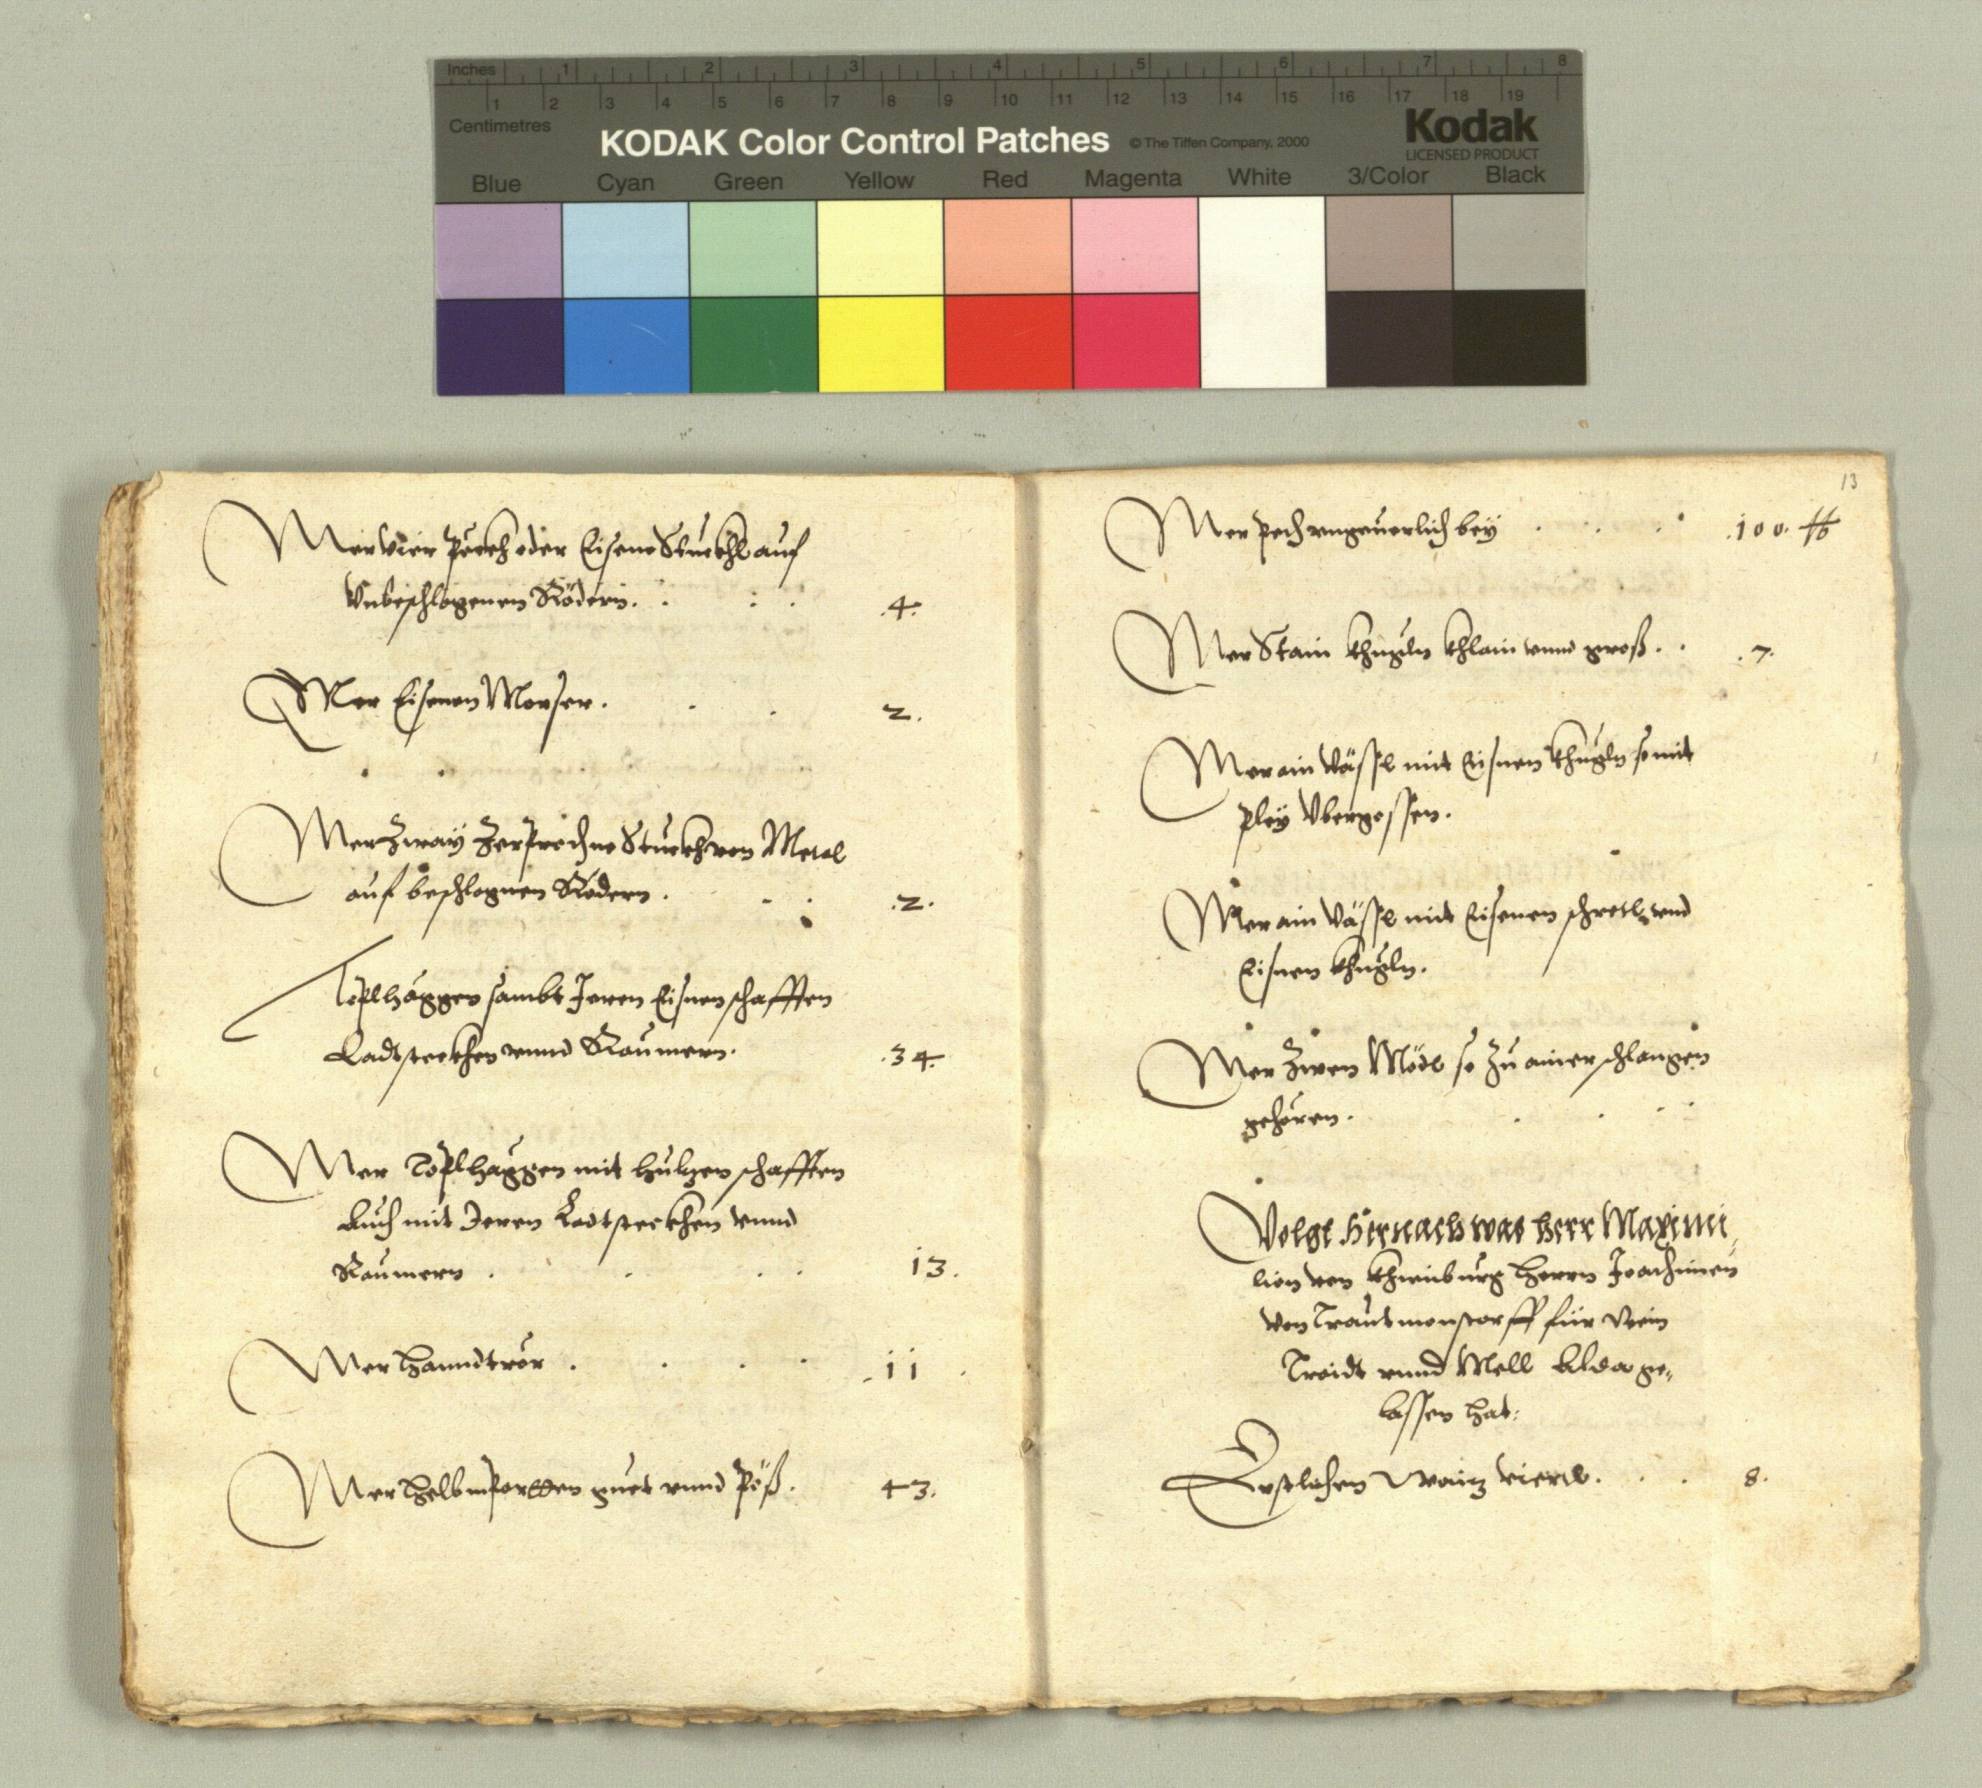 Inches 1 2 3 4 5 6 7 8
1 2 3 4 5 6 7 8 9 10 11 12 13 14 15 16 17 18 19
Centimetres
KODAK Color Control Patches © The Tiffen Company, 2000 Kodak
LICENSED PRODUCT
Blue Cyan Green Yellow Red Magenta White 3/Color Black
Mer vier Pöckh oder Eisene Stuckhl auf
Vnbeschlagenen Rödern. .4.
Mer Eisenen Morser. 2.
Mer Zway Zerprochne Stuckh von Metal
auf beschlagnen Rödern. .2.
Toplhaggen sambt Jeren Eisnen schafften
Ladtsteckhen vnnd Raumern. .34.
Mer Toplhaggen mit hulzen schafften
Auch mit Jeren Ladtsteckhen vnnd
Raumern. 13.
Mer Hanndtror. .11.
Mer Helbmparten guet vnnd Pöß. 43.
13
Mer Pech vngeuerlich bey .100. ℔
Mer Stain Khugln Khlain vnnd groß. .7.
Mer ain Vässl mit Eisnen Khugln so mit
Pley Vbergossen.
Mer ain Vässl mit Eisenen schrötl vnd
Eisnen Khugln.
Mer Zwen Mödl so Zu ainer schlangen
gehören.
Volgt Hernach was herr Maximi
lion von Khienburg Herrn Joachimen
von Trautmanstorff für Wein
Traidt vnnd Mell Alda ge„
lassen hat:
Erstlichen Waiz viertl. 8.